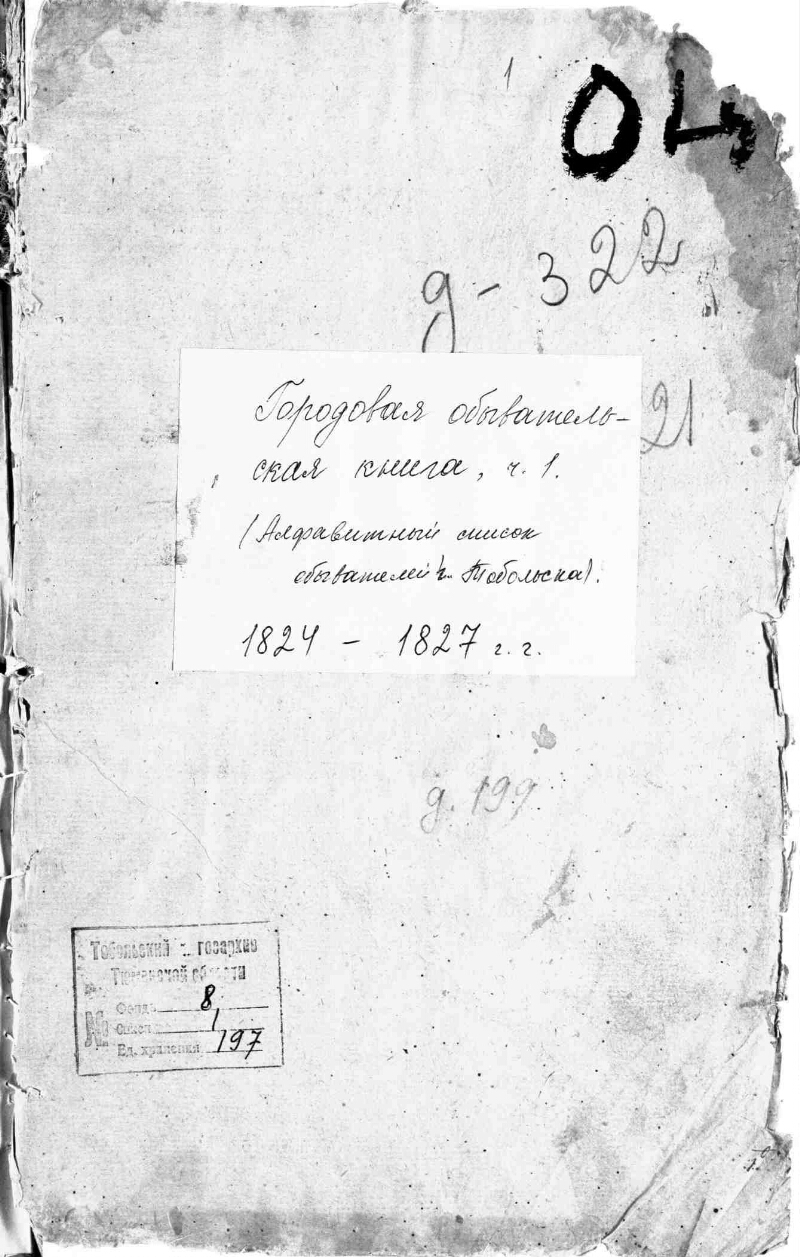 1
04
д - 322
21
Городовая обыватель-
ская книга, ч. 1.
(Алфавитный список
обывателей г. Тобольска).
1824 - 1827 г. г.
д. 199
Тобольский г. госархив
Тюменской области
№
Фонд 8
Опись 1
Ед. хранения 197